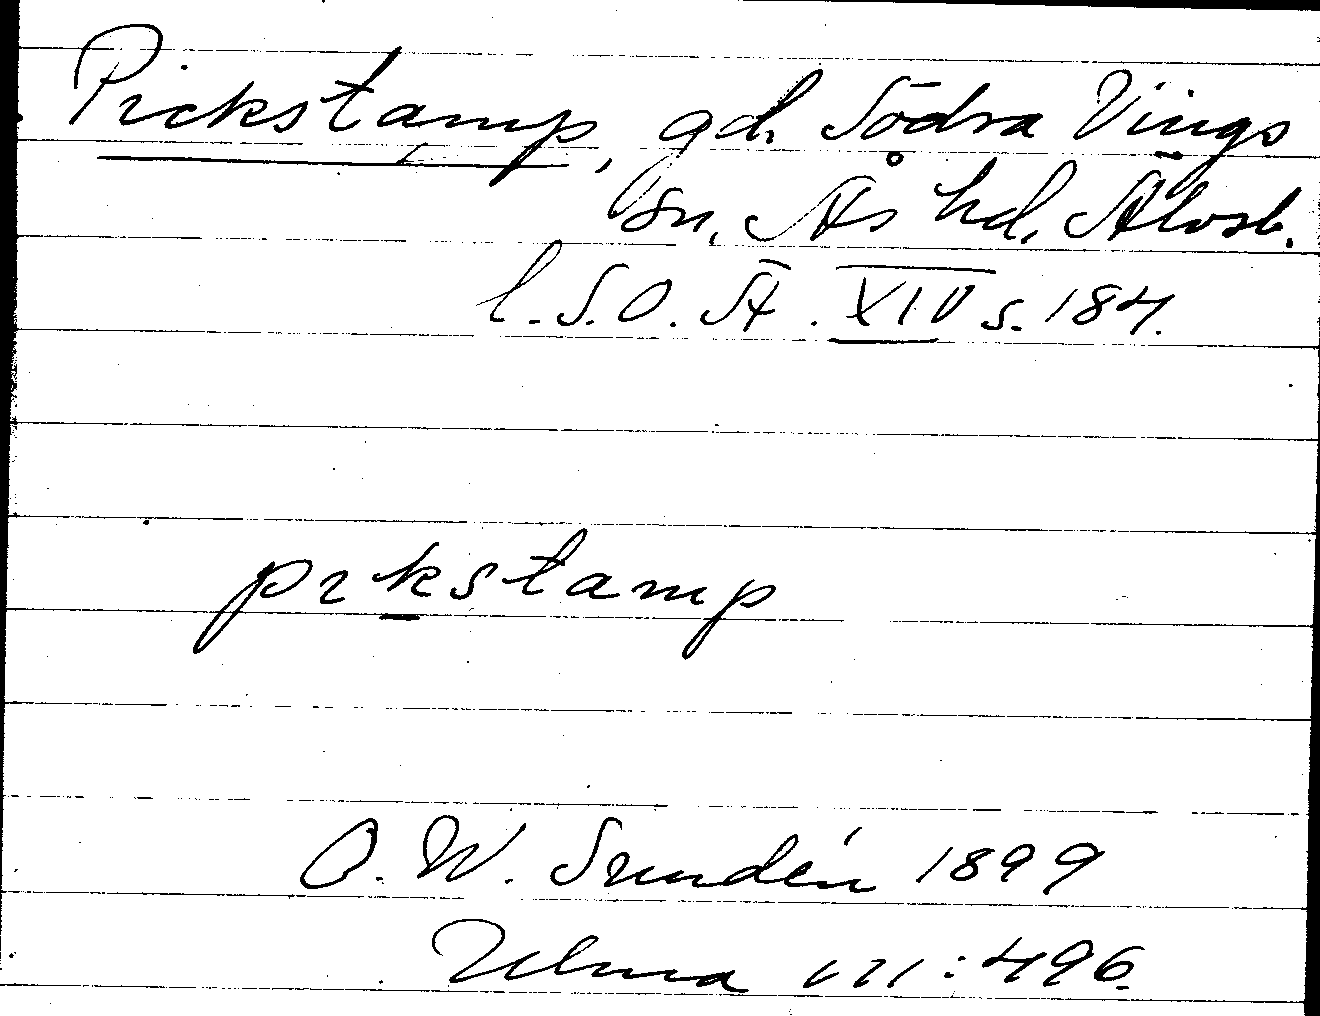 Pickstamp, gd. Södra Vings
sn. Ås hd. Älvsb.
l. S.O.Ä. XIV s. 184.
pıkstamp
O. W. Sundén 1899
Ulma 171:496.